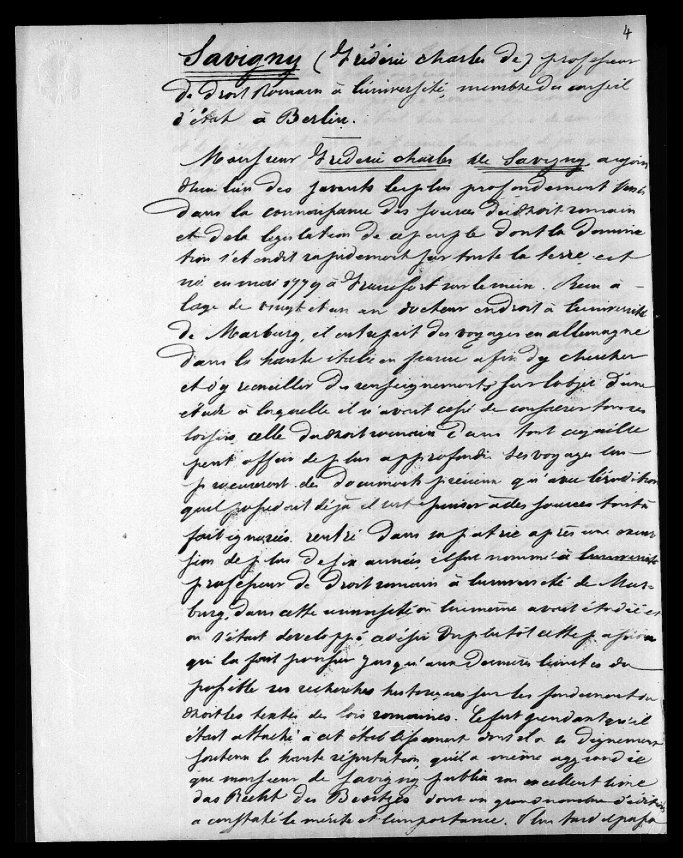 4
Savigny (Frédéric charles de) professeur
de droit Romain à l'université, membre du conseil
d'état à Berlin.
Monsieur Frederic charles de Savigny, aujour
d'hui l'un des savants les plus profondement versés
dans la connaissance des sources du droit romain
et de la legislation de ce peuple dont la domina
tion s'etendit rapidement sur toute la terre, est
né en mai 1779 à Francfort sur le mein. Reçu à
l'age de vingt et un an docteur en droit à l'université
de Marburg, il entreprit des voyages en allemagne
dans la haute italie en france afin d'y chercher
et d'y recueillir des renseignements sur l'objet d'une
étude à laquelle il n'avait cessé de consacrer tous ses
loisirs, celle du droit romain dans tout ce qu'elle
peut offrir de plus approfondi. Ses voyages lui
procurerent des documents précieux qu'avec l'érudition
qu'il possedait déjà il put puiser à des sources tout à
fait ignorées. rentré dans sa patrie après une excur
sion de plus de six années il fut nommé à l'université
professeur de droit romain à l'université de Mar-
burg, dans cette université où lui même avait étudié et
où s'était developpé ce désir ou plutôt cette passion
qui la fait pousser jusqu'aux dernières limites du
possible ses recherches historiques sur les fondements du
droit les textes des lois romaines. Ce fut pendant qu'il
était attaché à cet établissement dont il a si dignement
soutenu la haute réputation qu'il a même aggrandie
que monsieur de Savigny publia son excellent livre
das Recht des Besitzes dont un grand nombre d'éditions
a constaté le mérite et l'importance. Plus tard il passa